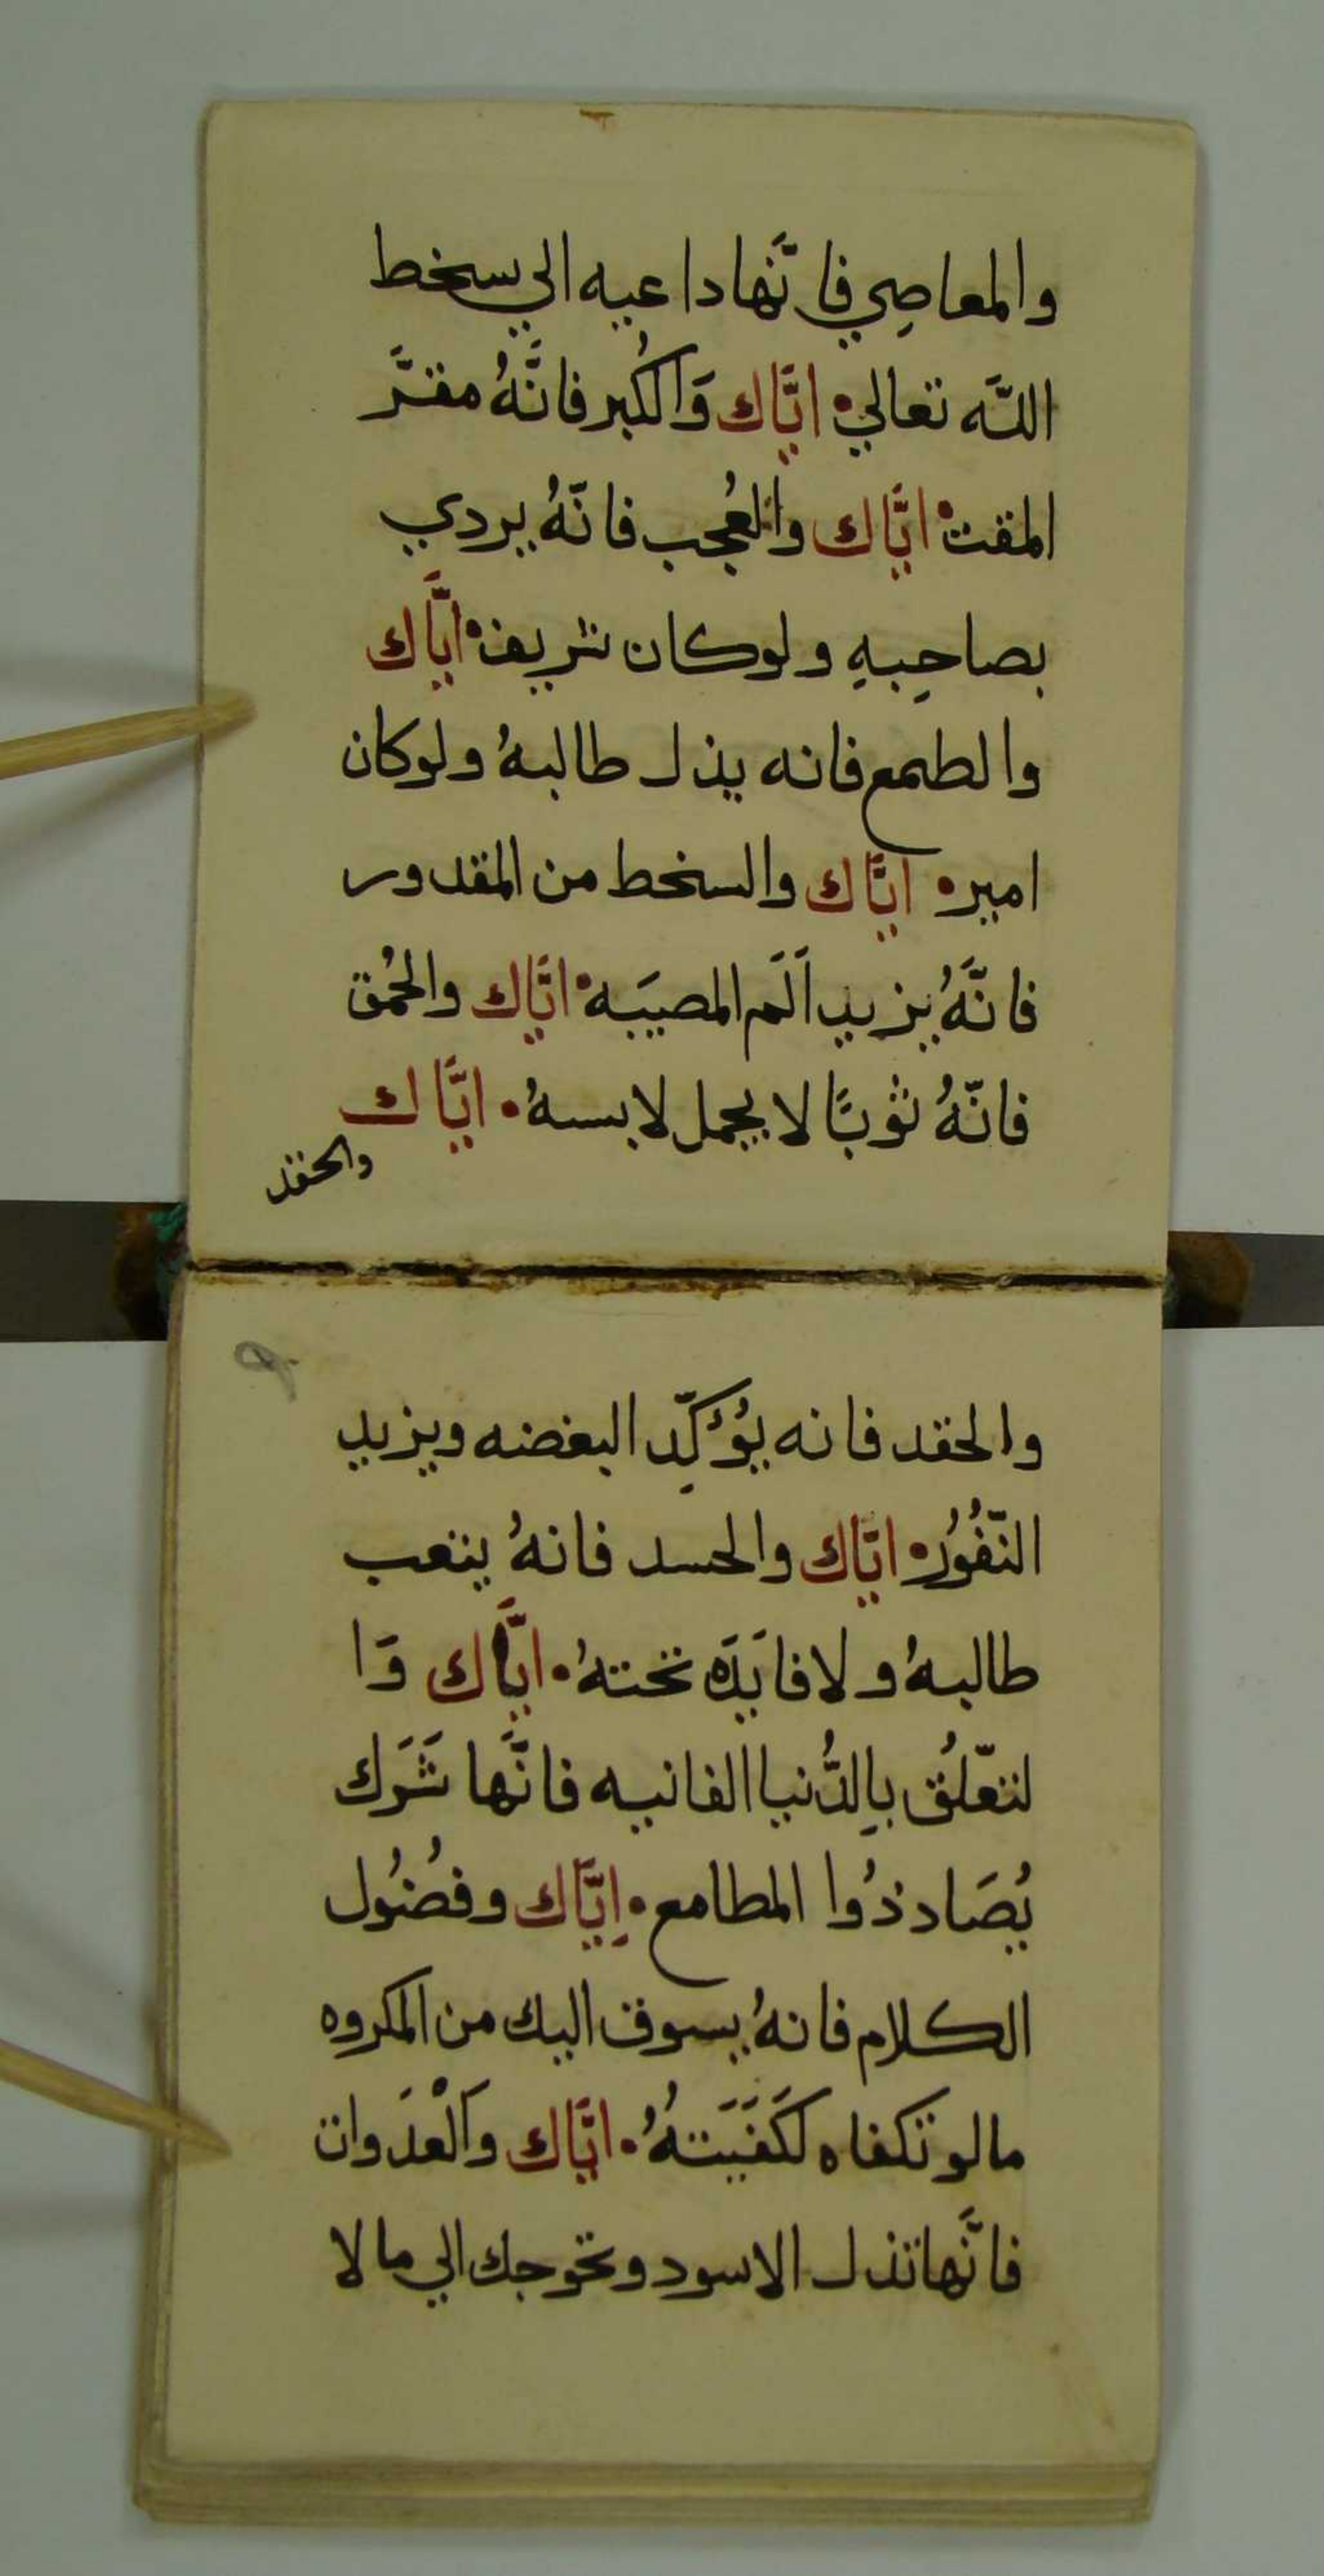 والمعاصِي فانَّها داعيه الي سخط
اللَّه تعالي • ايَّاك وَالكُبر فانَّهُ مقرَّ
المقت • ايَّاك والعُجب فانّهُ يردي
بصاحِبهِ ولوكان شريف • ايَّاك
والطمع فانه يذل طالبهُ ولوكان
امير • ايَّاك والسخط من المقدور
فانَّهُ يزيد اَلَم المصيبَه • ايَّاك والحُمق
فانّهُ ثوبًا لا يجمل لابسهُ • ايَّاك
والحقد
٩
والحقد فانه يُؤكِّد البغضه ويزيد
النّفُور • ايَّاك والحسد فانهُ يتعب
طالبهُ ولافايَدَه تحتهُ • ايَّاك وَا
لتعّلُق بِالدُّنيا الفانيه فانَّها شَرَك
يُصَاد ذُوا المطامع • اِيَّاك وفُضُول
الكلام فانهُ يسوق اليك من المكروه
مالو تكفاه لكَفَيَتهُ • ايَّاك وَالْعَدَوات
فانَّها تذل الاسود وتحوجك الي ما لا